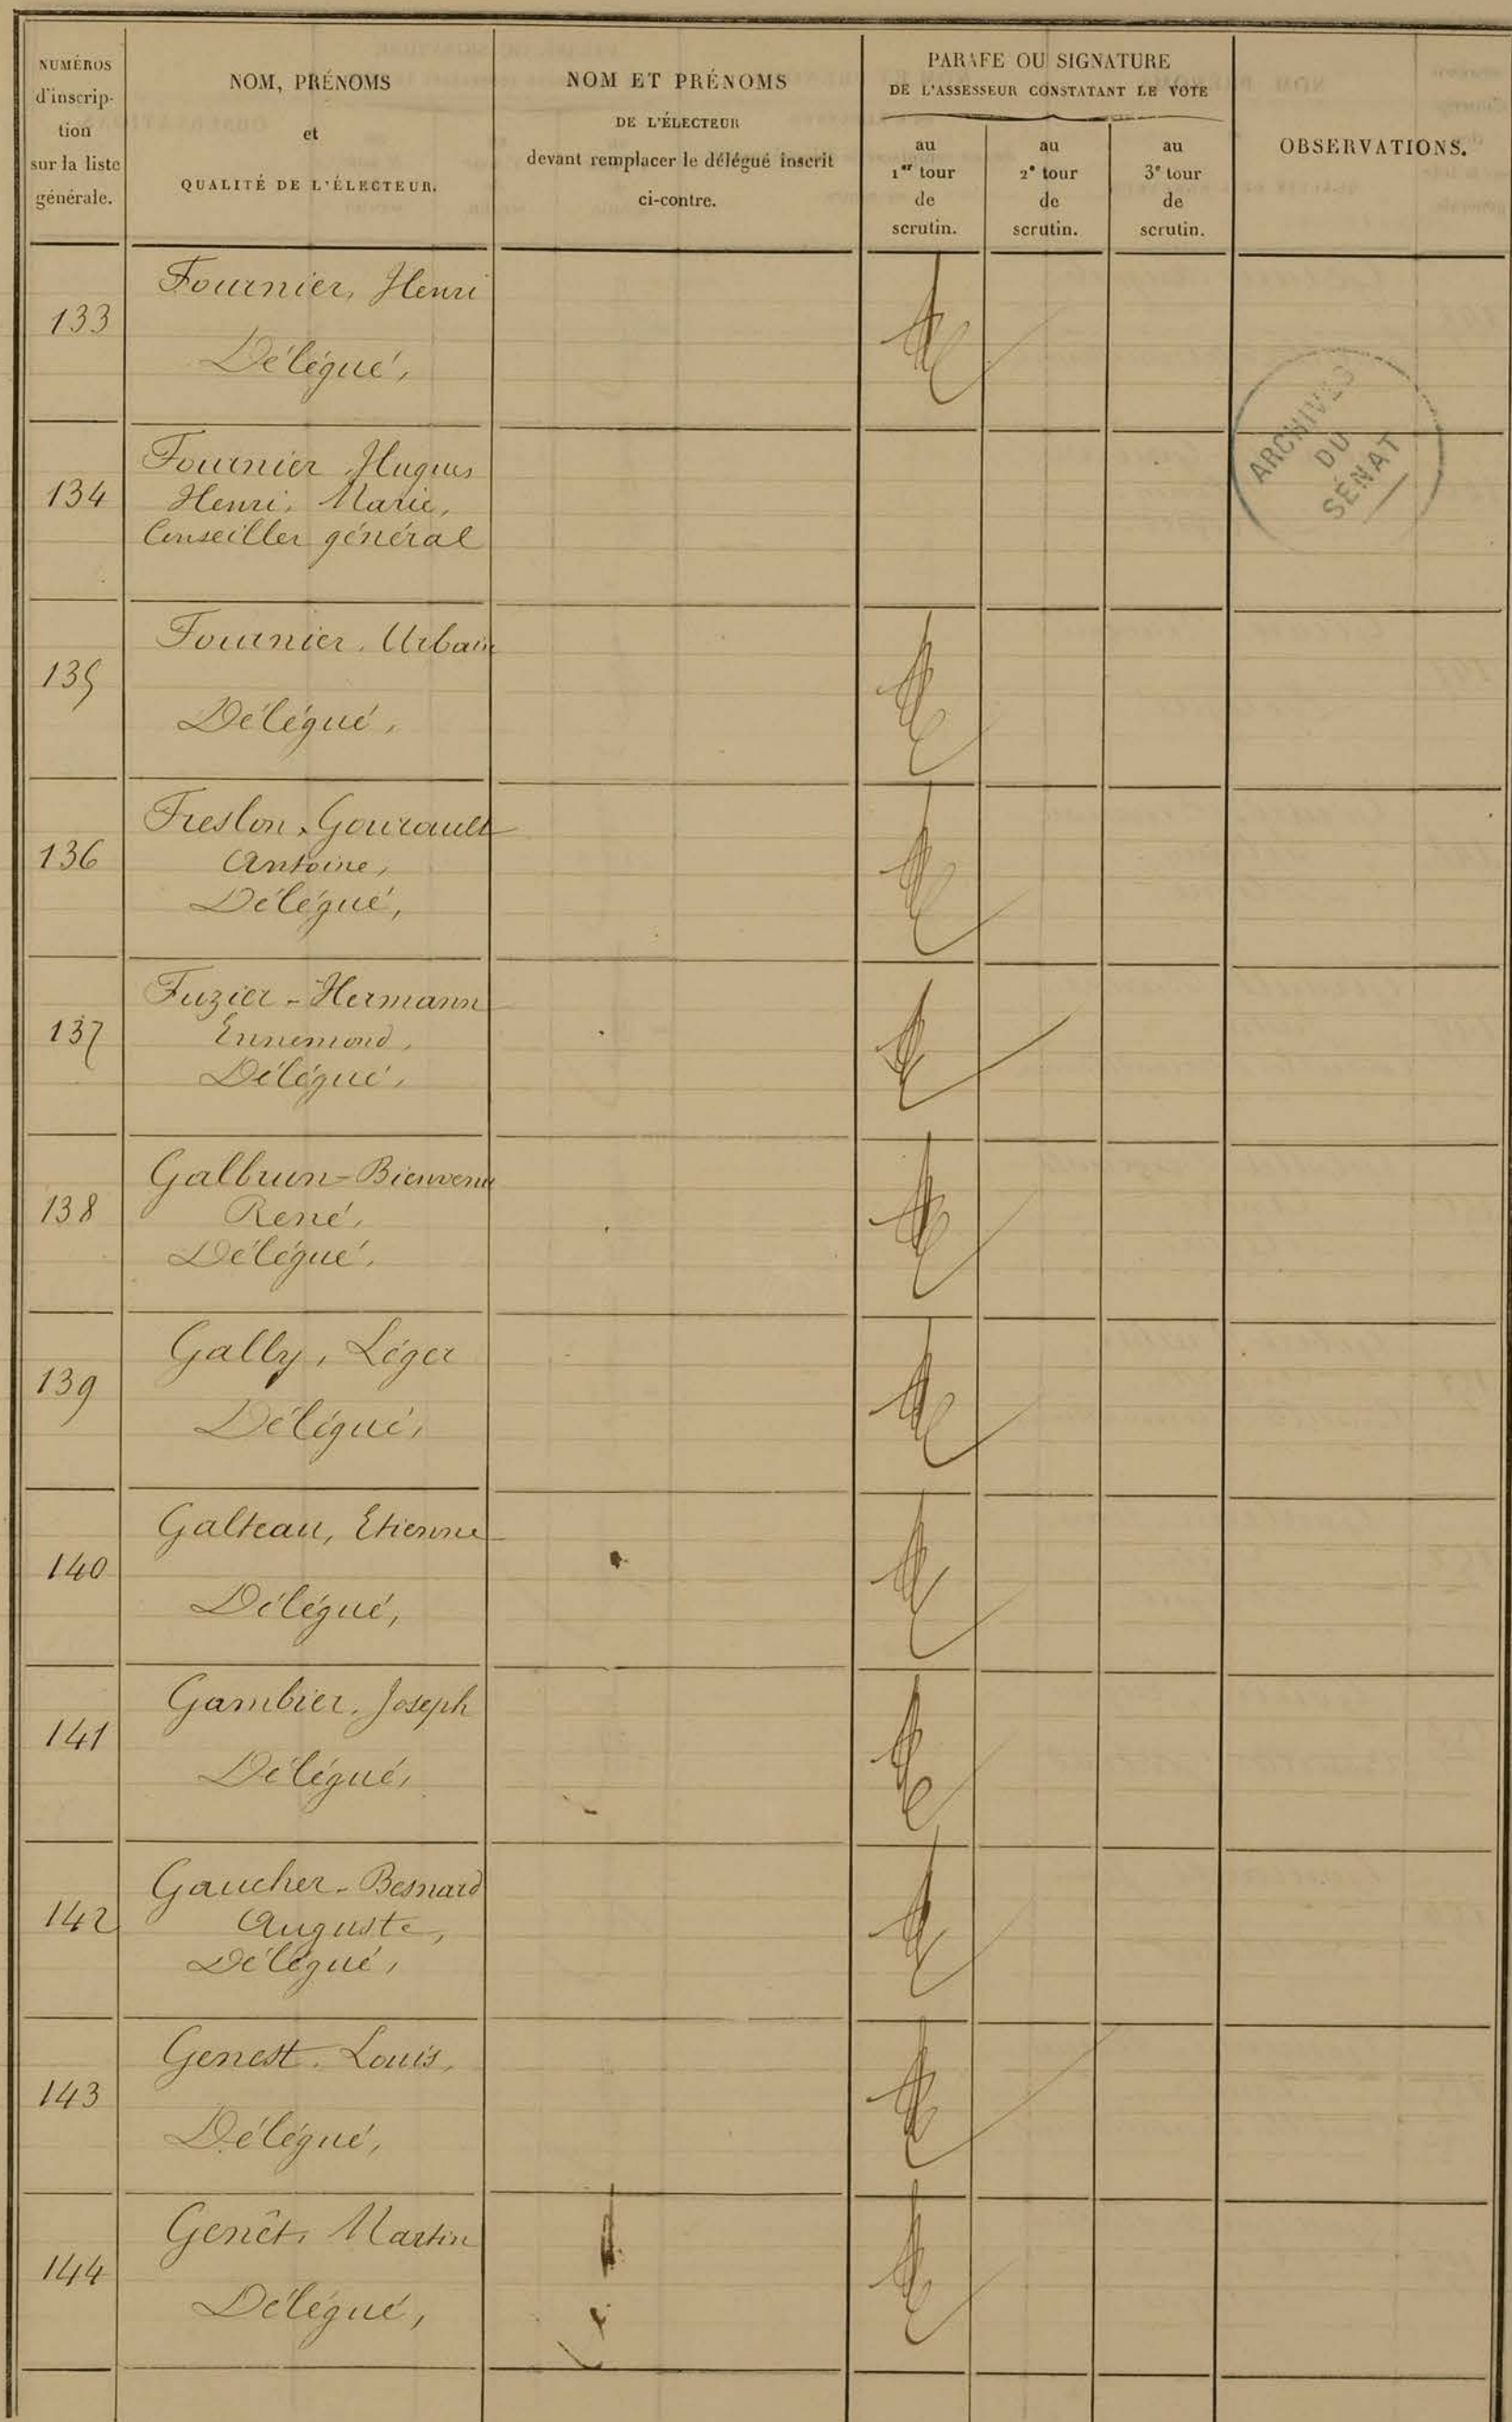 NUMÉROS
d'inscrip-
tion
sur la liste
générale.
NOM, PRÉNOMS
et
QUALITÉ DE L'ÉLECTEUR.
NOM ET PRÉNOMS
DE L'ÉLECTEUR
devant remplacer le délégué inscrit
ci-contre.
PARAFE OU SIGNATURE
DE L'ASSESSEUR CONSTATANT LE VOTE
au
1er tour
de
scrutin.
au
2e tour
de
scrutin.
au
3e tour
de
scrutin.
OBSERVATIONS.
133
Fournier, Henri
Délégué,
134
Fournier, Hugues
Henri, Marie,
Conseiller général
ARCHIVES
DU
SÉNAT
135
Fournier, Urbain
Délégué,
136
Freslon-Gourault
Antoine,
Délégué,
137
Fuzier-Hermann
Ennemond,
Délégué,
138
Galbrun-Bienvenu
René,
Délégué,
139
Gally, Léger
Délégué,
140
Galteau, Etienne
Délégué,
141
Gambier, Joseph
Délégué,
142
Gaucher-Besnard
Auguste,
Délégué,
143
Genest, Louis,
Délégué,
144
Genêt, Martin
Délégué,